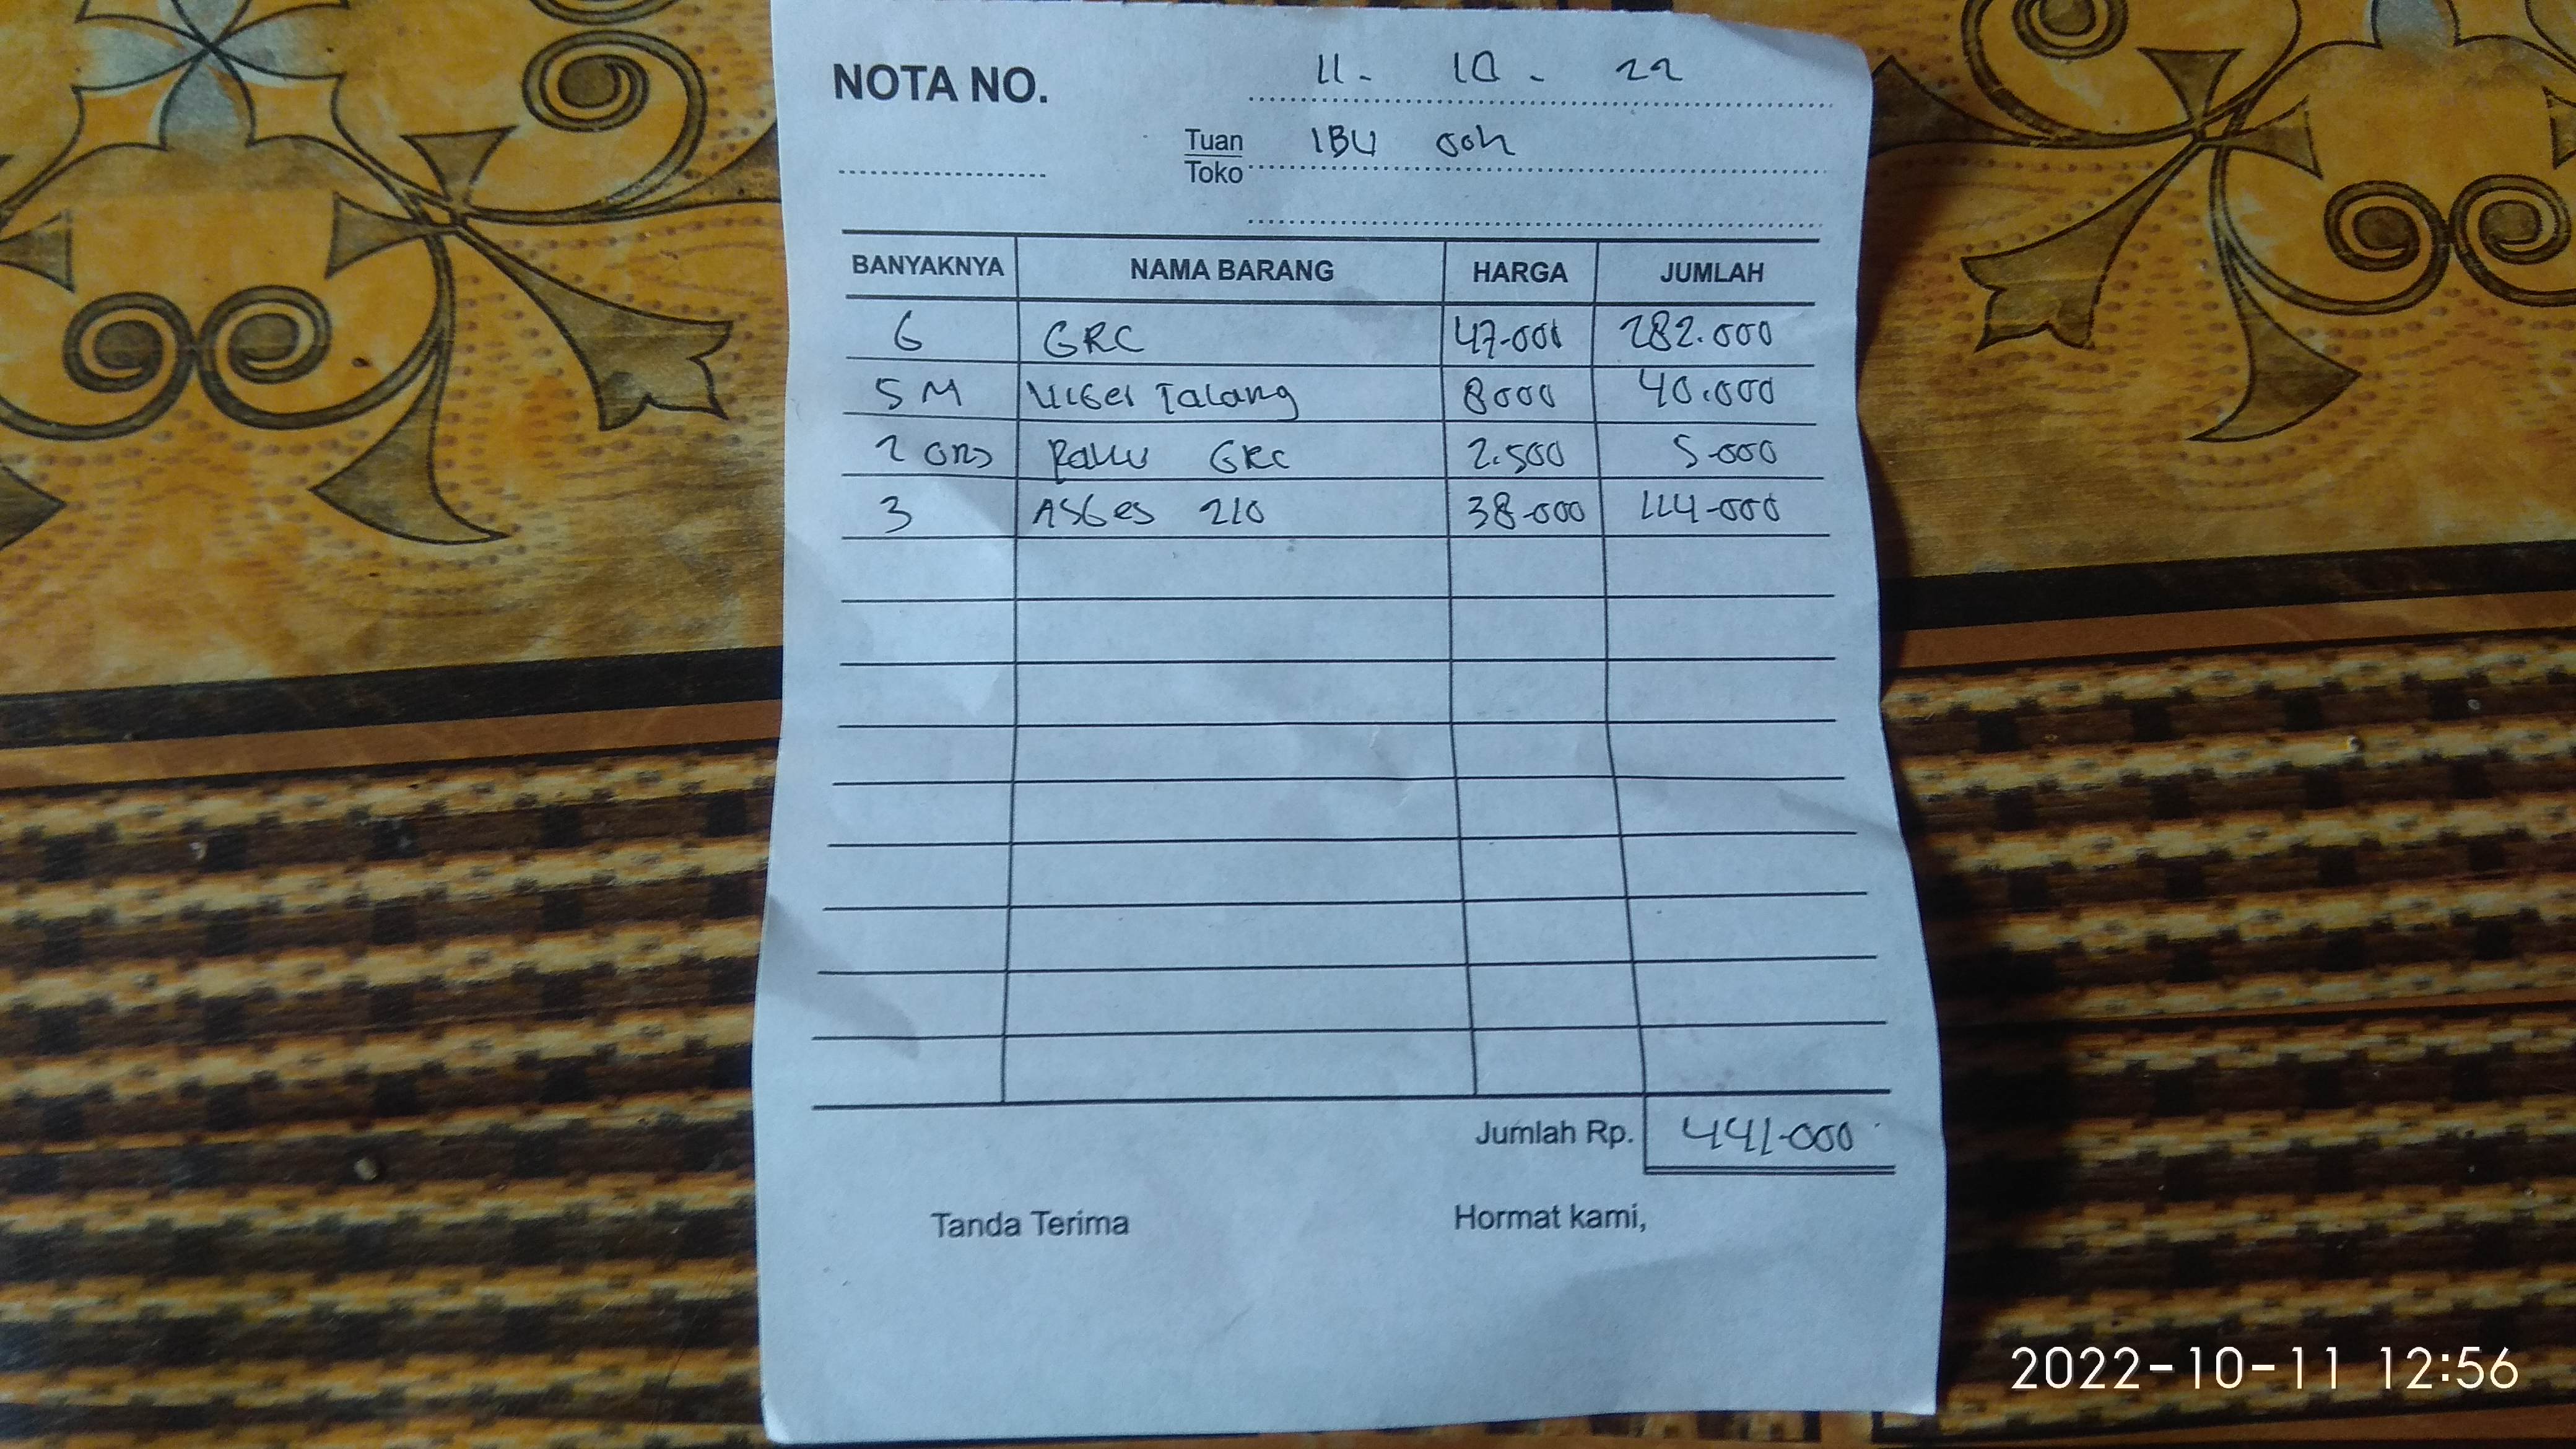 NOTA NO.
11 - 10 - 22
Tuan IBU ooh
Toko
BANYAKNYA NAMA BARANG HARGA JUMLAH
6 GRC 47.000 282.000
5 M Talang 8000 40.000
2 ons Paku GRC 2.500 5.000
3 ASGES 210 38.000 114.000
Jumlah Rp. 441.000
Tanda Terima Hormat kami,
2022-10-11 12:56